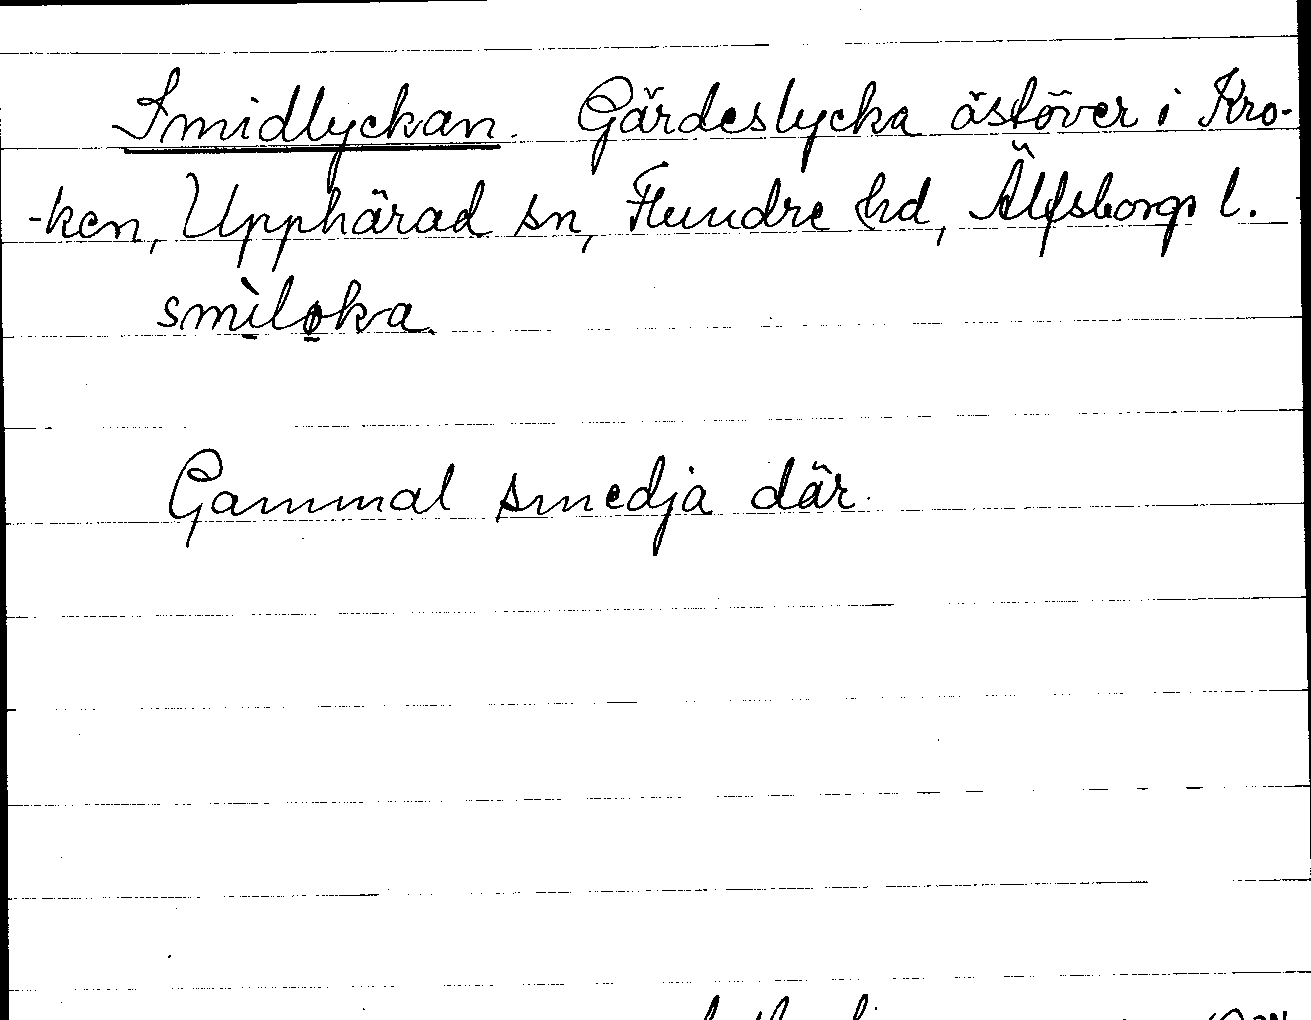 Smidlyckan. Gärdeslycka öståver i Kro-
-ken, Upphärad sn, Flundre hd, Älfsborgs l.
smìloka.
Gammal smedja där.